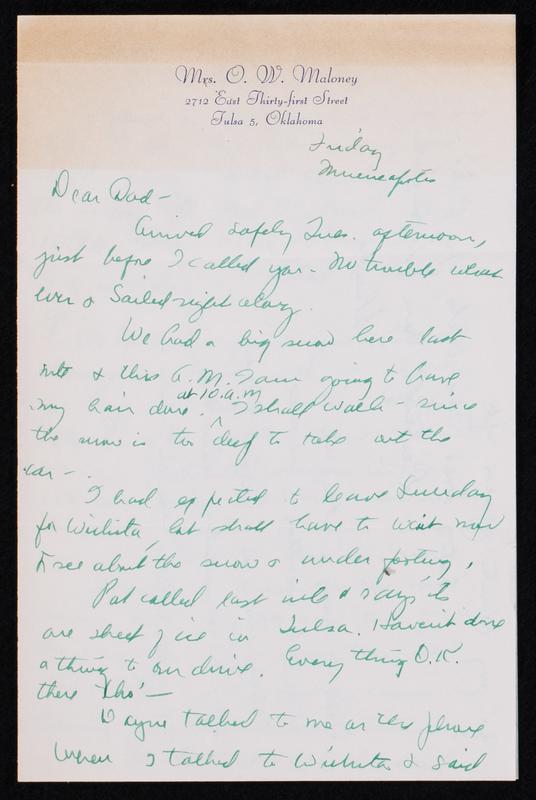 Mrs. O. W. Maloney
2712 East Thirty-first Street
Tulsa 5, Oklahoma
Friday
Minneapolis
Dear Dad—
Arrived safely Tues. afternoon,
just before I called you. No trouble what
ever & sailed right along.
We had a big snow here last
nite & this A.M. I am going to have
my hair done at 10 a.m. I shall walk - since
the snow is too deep to take out the
car—.
I had expected to leave Sunday
for Wichita, but shall have to wait now
& see about the snow & under footing.
Pat called last nite & says its
one sheet of ice in Tulsa. Haven't done
a thing to our drive. Everything O.K.
there tho'—
Wayne talked to me on the phone
when I talked to Wichita & said